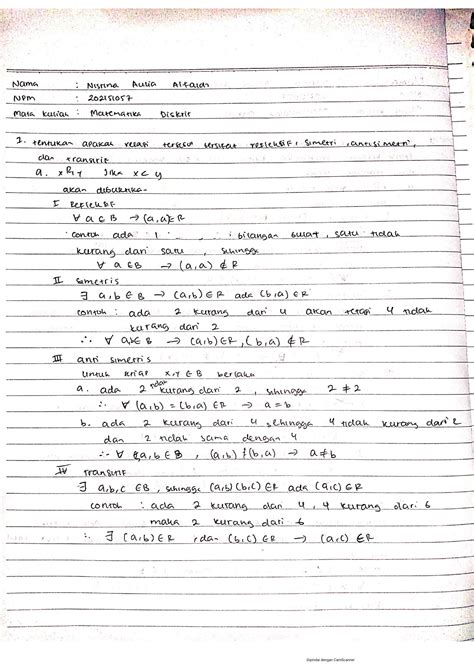 Nama : Nisrina Aulia Alfaidh
NPM : 202151057
Mata kuliah : Matematika Diskrit
1. tentukan apakah relasi tersebut bersifat refleksif, simetri, antisimetri,
dan transitif
a. xR₁y Jika x < y
akan dibuktikan
I Refleksif
∀ a ∈ B → (a,a) ∈ R
contoh ada 1 bilangan bulat, satu tidak
kurang dari satu, sehingga
∀ a ∈ B → (a,a) ∉ R
II simetris
∃ a,b ∈ B → (a,b) ∈ R ada (b,a) ∈ R
contoh : ada 2 kurang dari 4 akan tetapi 4 tidak
kurang dari 2
∴ ∀ a,b ∈ B → (a,b) ∈ R, (b,a) ∉ R
III anti simetris
untuk setiap x,y ∈ B berlaku
a. ada 2 tidak kurang dari 2, sehingga 2 ≠ 2
∴ ∀ (a,b) = (b,a) ∈ R → a = b
b. ada 2 kurang dari 4 sehingga 4 tidak kurang dari 2
dan 2 tidak sama dengan 4
∴ ∀ a,b ∈ B, (a,b) ∤ (b,a) → a ≠ b
IV Transitif
∃ a,b,c ∈ B, sehingga (a,b) (b,c) ∈ R ada (a,c) ∈ R
contoh : ada 2 kurang dari 4, 4 kurang dari 6
maka 2 kurang dari 6
∴ ∃ (a,b) ∈ R, dan (b,c) ∈ R → (a,c) ∈ R
Dipindai dengan CamScanner